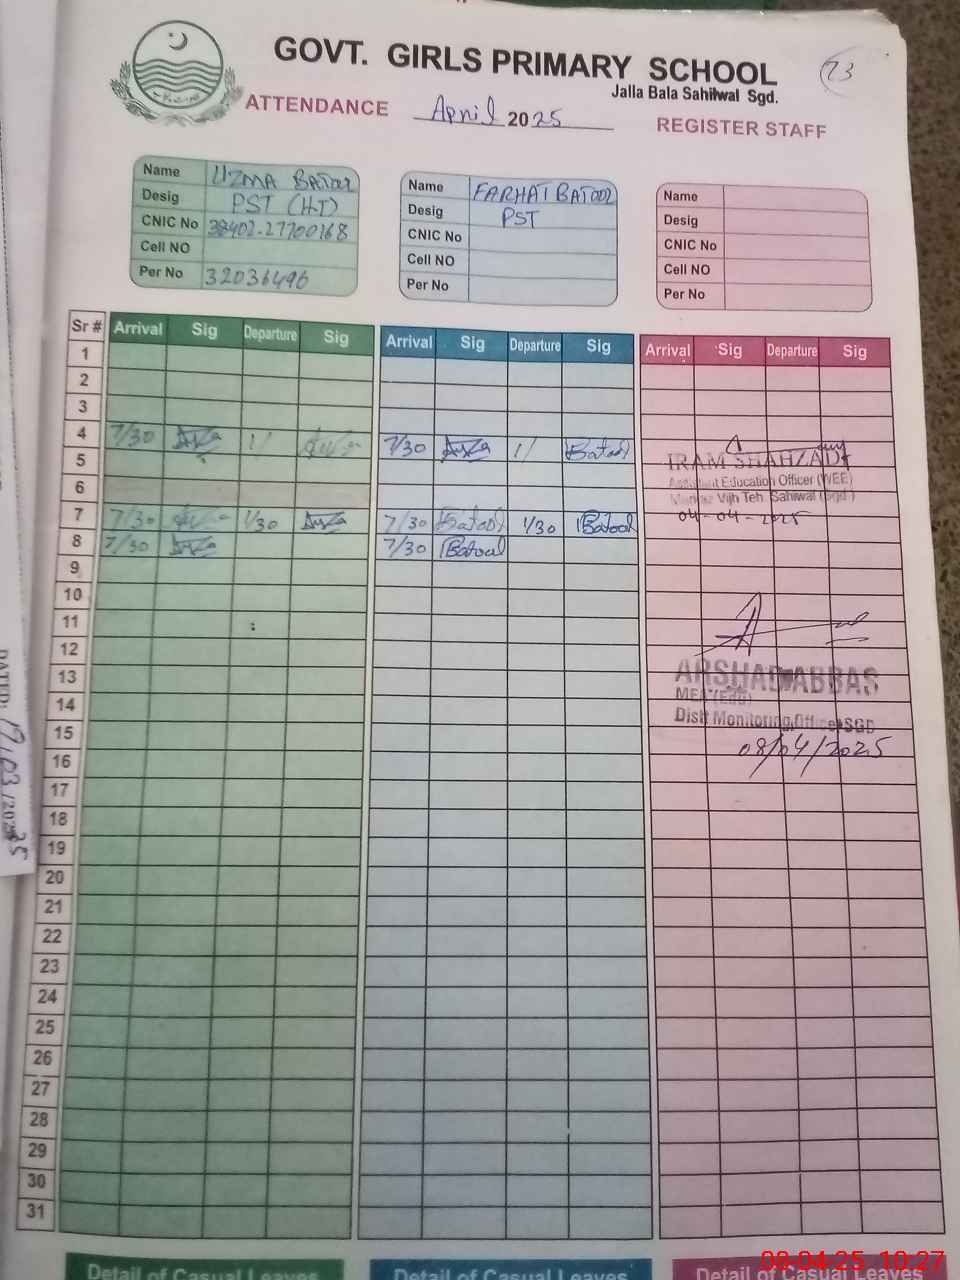 GOVT. GIRLS PRIMARY SCHOOL
73
Jalla Bala Sahilwal Sgd.
ATTENDANCE April 2025 REGISTER STAFF
Name UZMA BATOOL
Desig PST (H-T)
CNIC No 38402-27700168
Cell NO
Per No 32036496
Name FARHAT BATOOL
Desig PST
CNIC No
Cell NO
Per No
Name
Desig
CNIC No
Cell NO
Per No
Sr # Arrival Sig Departure Sig Arrival Sig Departure Sig Arrival Sig Departure Sig
1
2
3
4 7/30 1/ 7/30 1/ Batool
5
6
7 7/30 1/30 7/30 Batool 1/30 Batool
8 7/30 7/30 Batool
9
10
11
12
13
14
15
16
17
18
19
20
21
22
23
24
25
26
27
28
29
30
31
IRAM SHAHZADI
Assistant Education Officer (WEE)
Markaz Vijh Teh. Sahiwal (Sgd.)
04-04-2025
ARSHAD ABBAS
MEA (Edu)
Distt Monitoring Officer SGD
08/04/2025
DATED: 17/03/2025
Detail of Casual Leaves Detail of Casual Leaves Detail of Casual Leaves
08-04-25 10:27